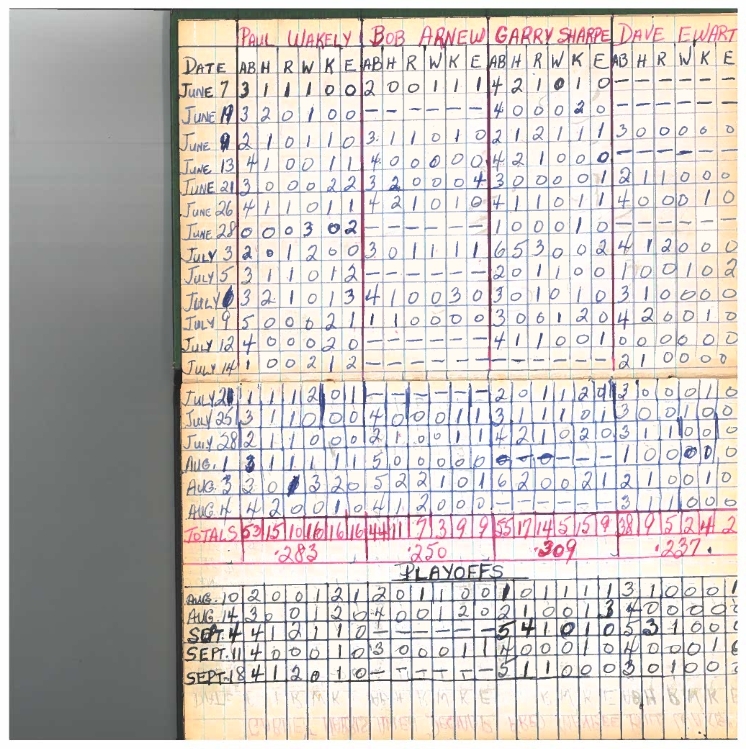 PAUL WAKELY BOB ARNEW GARRY SHARPE DAVE EWART
DATE AB H R W K E AB H R W K E AB H R W K E AB H R W K E
JUNE 7 3 1 1 1 0 0 2 0 0 1 1 1 4 2 1 0 1 0 – – – – – –
JUNE 3 2 0 1 0 0 – – – – – – 4 0 0 0 2 0 – – – – – –
JUNE 9 2 1 0 1 1 0 3 1 1 0 1 0 2 1 2 1 1 1 3 0 0 0 0 0
JUNE 13 4 1 0 0 1 1 4 0 0 0 0 0 4 2 1 0 0 0 – – – – – –
JUNE 21 3 0 0 0 2 2 3 2 0 0 0 4 3 0 0 0 0 1 2 1 1 0 0 0
JUNE 26 4 1 1 0 1 1 4 2 1 0 1 0 4 1 1 0 1 1 4 0 0 0 1 0
JUNE 28 0 0 0 3 0 2 – – – – – – 1 0 0 0 1 0 – – – – – –
JULY 3 2 0 1 2 0 0 3 0 1 1 1 1 6 5 3 0 0 2 4 1 2 0 0 0
JULY 5 3 1 1 0 1 2 – – – – – – 2 0 1 1 0 0 1 0 0 1 0 2
JULY 3 2 1 0 1 3 4 1 0 0 3 0 3 0 1 0 1 0 3 1 0 0 0 0
JULY 9 5 0 0 0 2 1 1 1 0 0 0 0 3 0 0 1 2 0 4 2 0 0 1 0
JULY 12 4 0 0 0 2 0 – – – – – – 4 1 1 0 0 1 0 0 0 0 0 0
JULY 14 1 0 0 2 1 2 – – – – – – – – – – – – 2 1 0 0 0 0
JULY 1 1 1 2 0 1 – – – – – – 2 0 1 1 2 3 0 0 0 1 0
JULY 25 3 1 1 0 0 0 4 0 0 0 1 1 3 1 1 1 0 1 3 0 0 1 0 0
JULY 28 2 1 1 0 0 0 2 1 0 0 1 1 4 2 1 0 2 0 3 1 1 0 0 0
AUG. 1 3 1 1 1 1 1 5 0 0 0 0 0 – – – – – – 1 0 0 0 0
AUG. 3 2 0 1 3 2 0 5 2 2 1 0 1 6 2 0 0 2 1 2 1 0 0 1 0
AUG. 4 4 2 0 0 1 0 4 1 2 0 0 0 – – – – – – 3 1 1 0 0 0
TOTALS 53 15 10 16 16 16 44 11 7 3 9 9 55 17 14 5 15 9 38 9 5 2 4 2
.283 .250 .309 .237.
PLAYOFFS
AUG. 10 2 0 0 1 2 1 2 0 1 1 0 0 1 0 1 1 1 1 3 1 0 0 0 1
AUG. 14 3 0 0 1 2 0 4 0 0 1 2 0 2 1 0 0 1 3 4 0 0 0 0 0
SEPT. 4 4 1 2 1 1 0 – – – – – – 5 4 1 0 1 0 5 3 1 0 0
SEPT. 11 4 0 0 0 1 0 3 0 0 0 1 1 4 0 0 0 1 0 4 0 0 0 1
SEPT. 18 4 1 2 0 1 0 – – – – – – 5 1 1 0 0 0 3 0 1 0 0